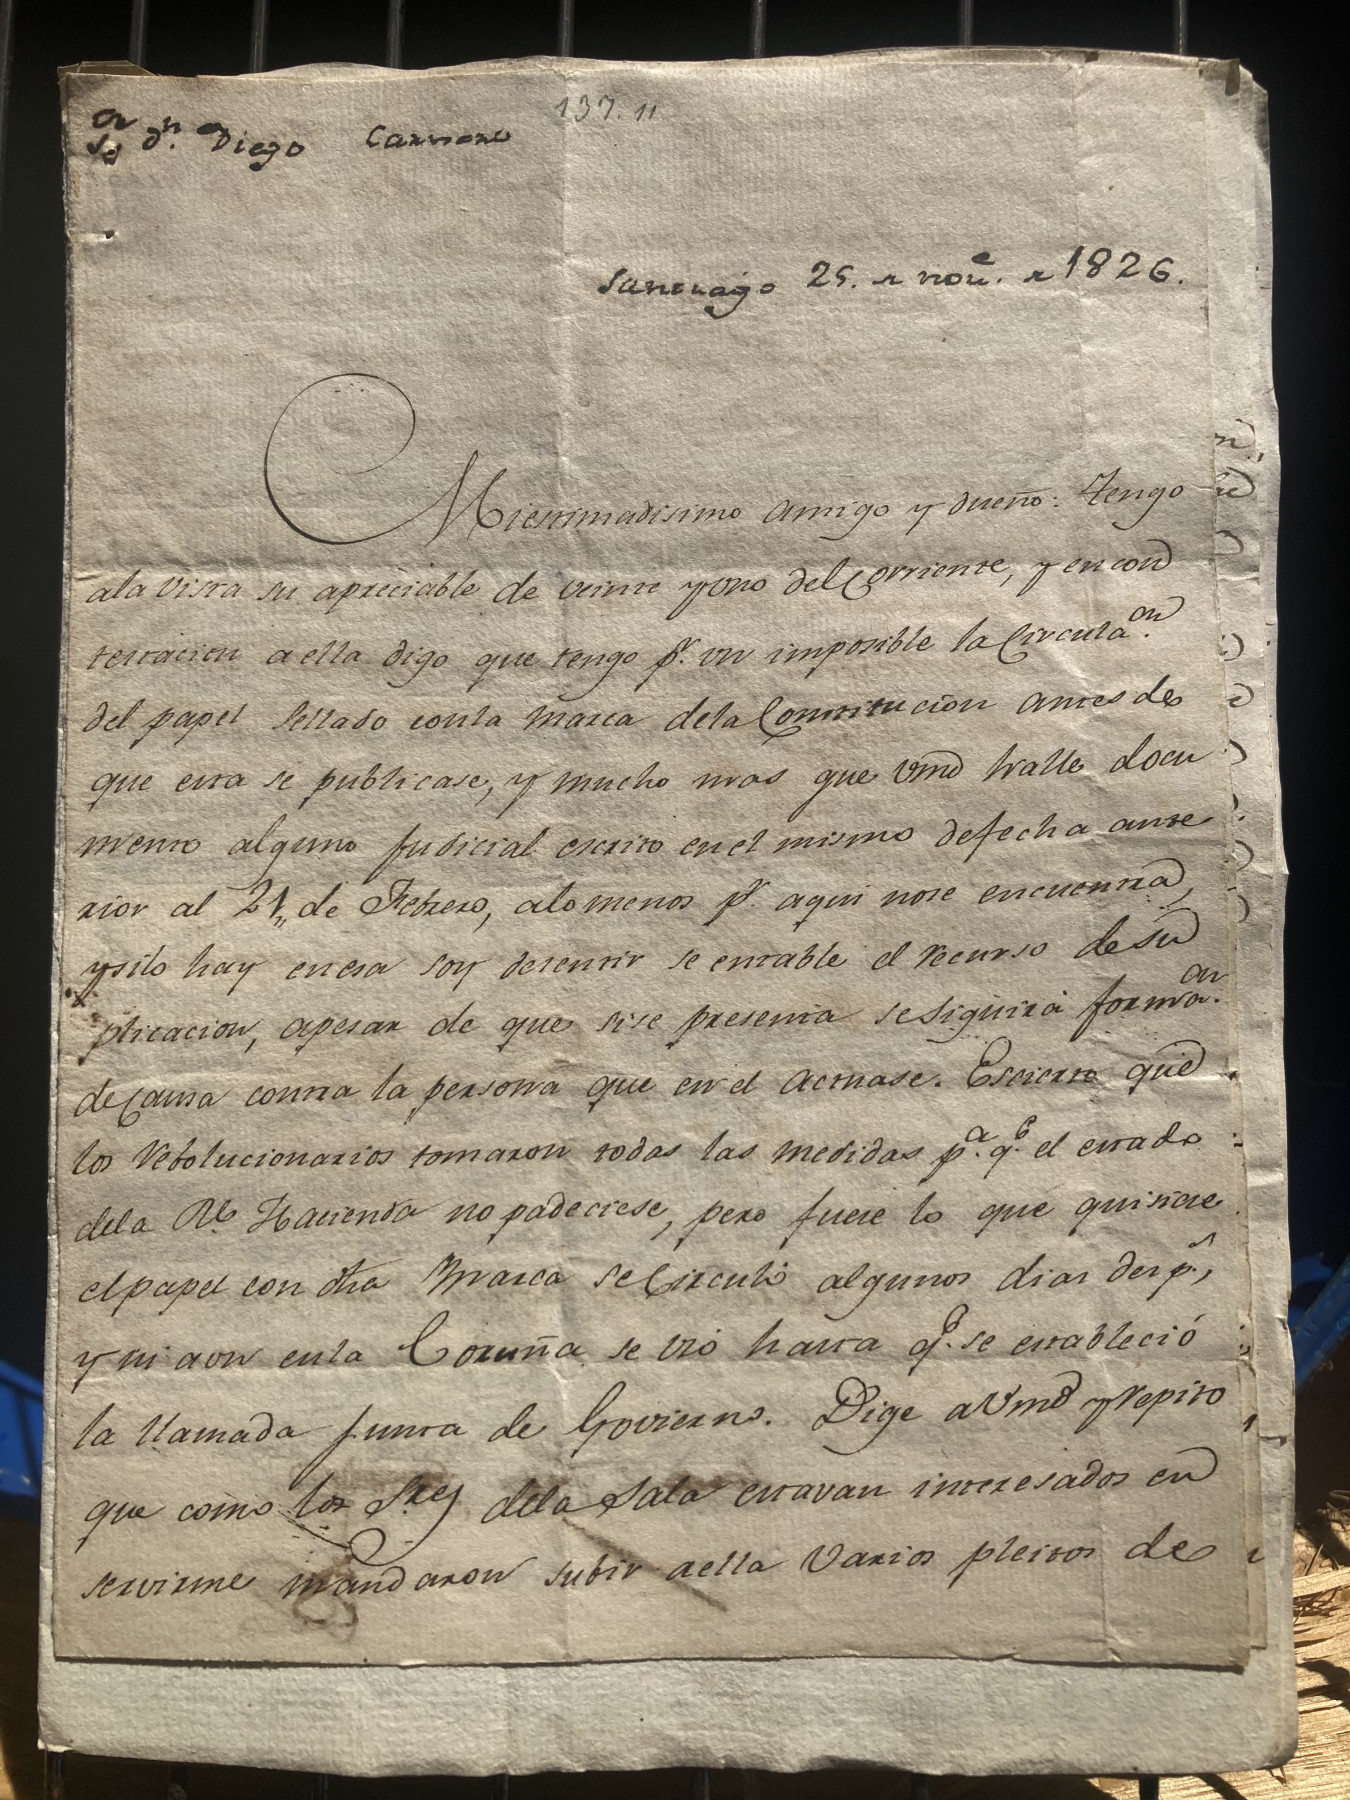 137. 11
Sor dn. Diego Carnero
Santiago 25. de nove. de 1826.
Mi estimadisimo amigo y dueño: Tengo
ala vista su apreciable de veinte y uno del Corriente, y en con
testacion a ella digo que tengo pr. un imposible la Circulaon.
del papel Sellado con la marca dela Constitucion antes de
que esta se publicase, y mucho mas que Vmd halle docu
mento alguno Judicial escrito en el mismo de fecha ante
rior al 21,, de Febrero, alo menos pr. aqui nose encuentra,
ysilo hay en esa soy desentir se entable el recurso de su
plicacion, apesar de que sise presenta se siguirá formaon.
de Causa contra la persona que en el actuase. Escierto que
los Rebolucionarios tomaron todas las medidas pa. qe. el estado
dela Rl Hacienda no padeciese, pero fuese lo que quisiere
el papel con dha Marca se Circuló algunos dias desps.,
y ni aon en la Coruña se vió hasta qe. se estableció
la llamada Junta de Govierno. Dige a Vmd y repito
que como los Sres dela Sala estavan interesados en
servirme mandaron subir a ella varios pleitos de